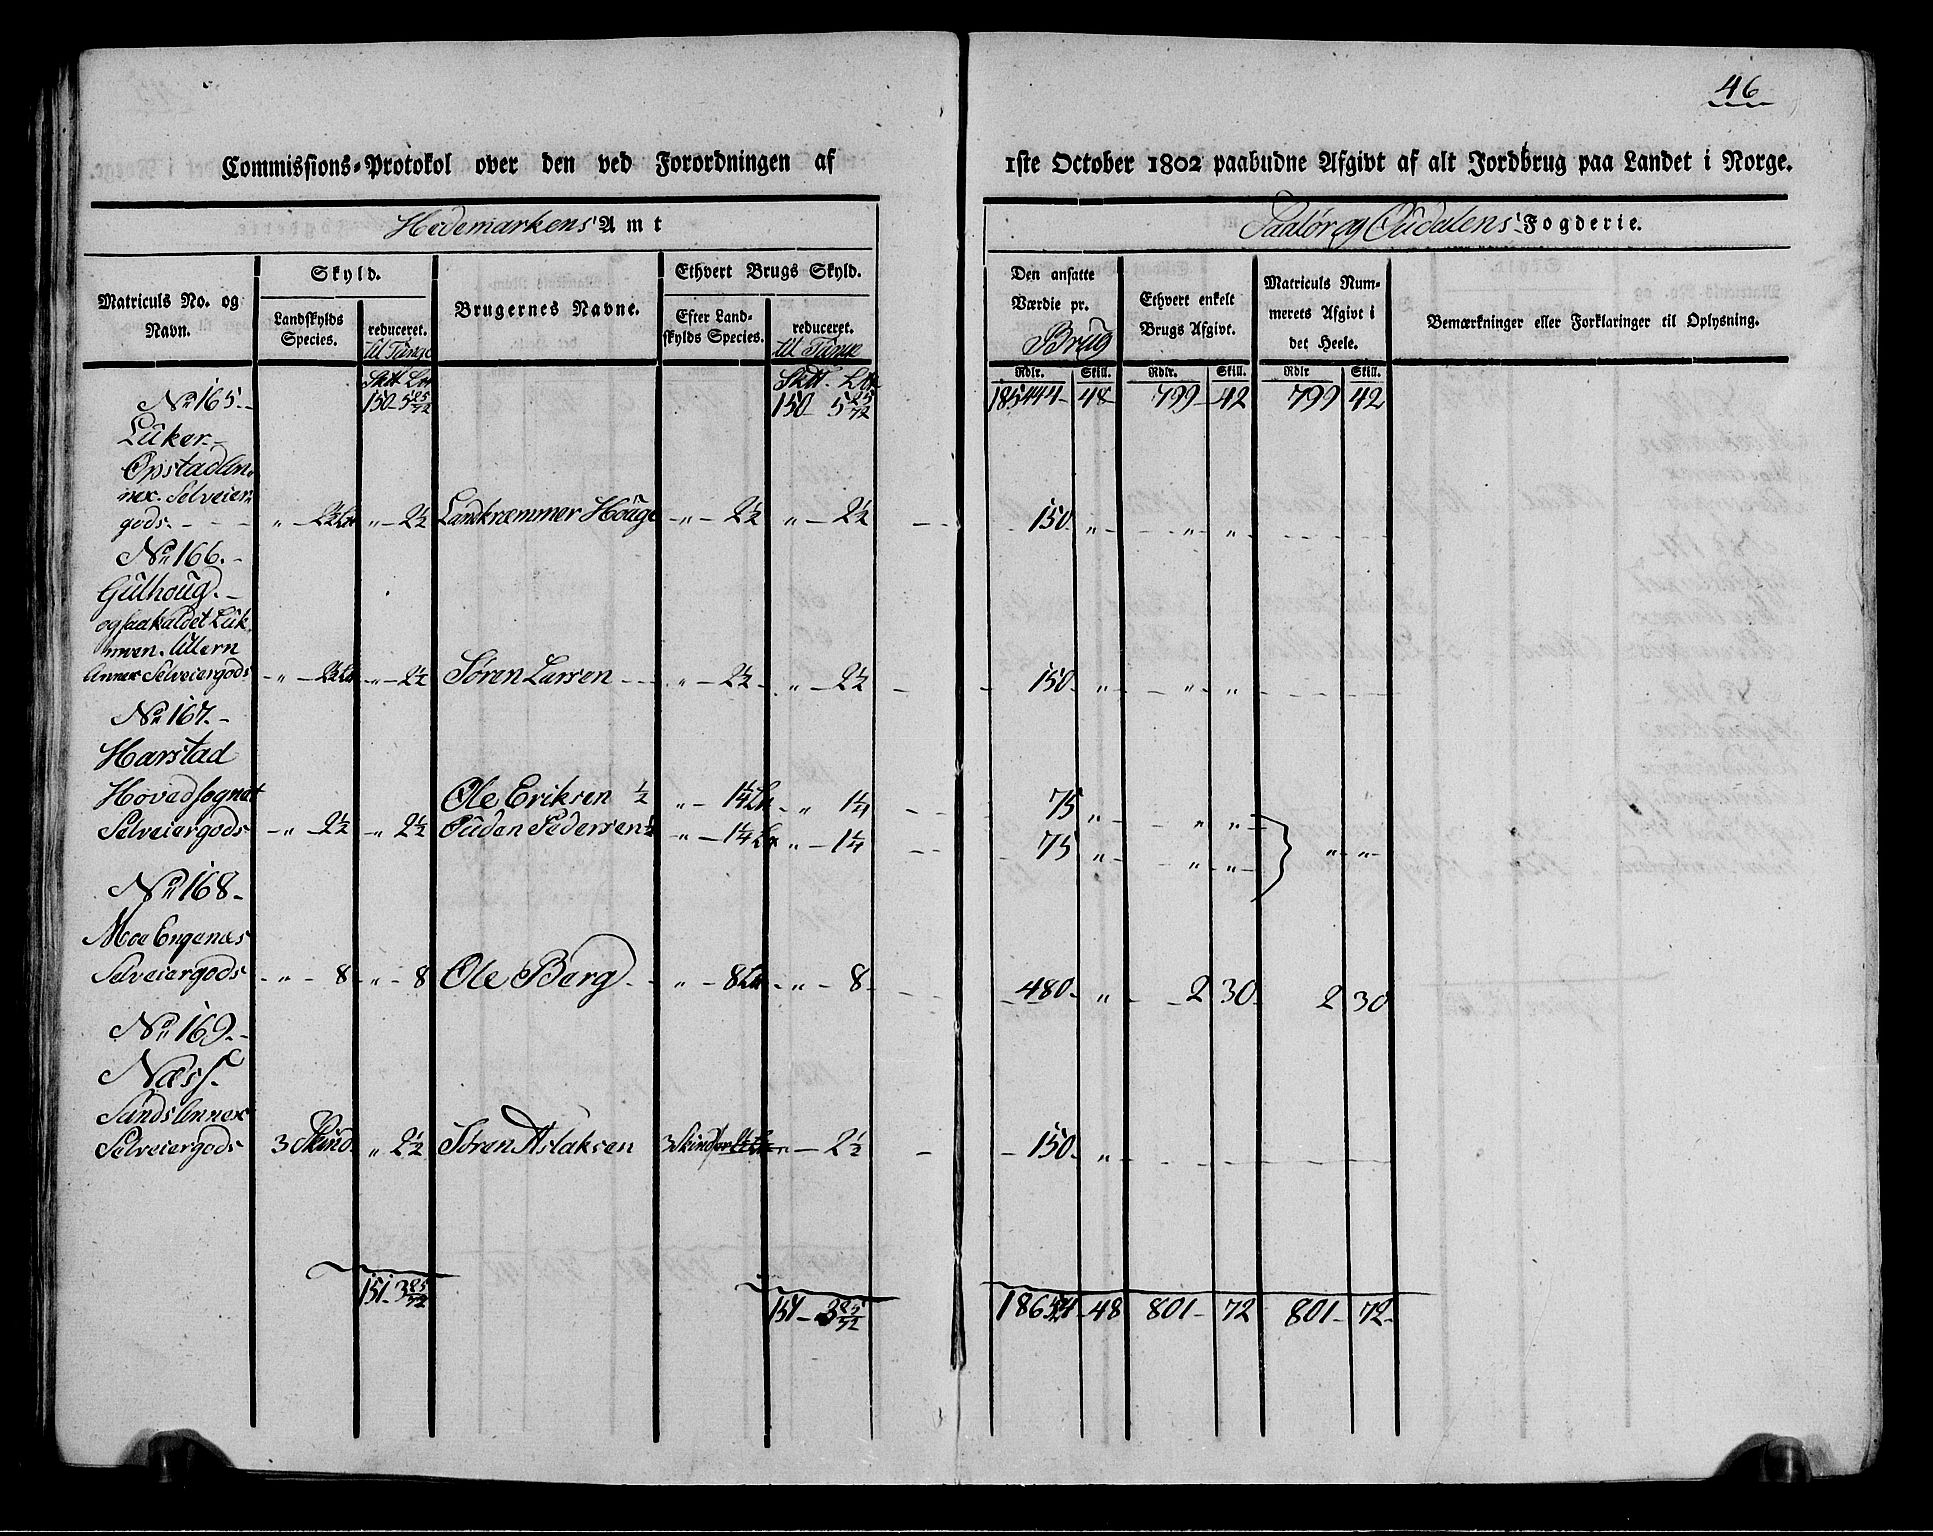 46
Commissions-Protokol over den ved Forordningen af 1ste October 1802 paabudne Afgivt af alt Jordbrug paa Landet i Norge.
Hedemarkens Amt
Soelør og Oudalens Fogderie.
Matriculs No. og Navn.
Skyld.
Landskylds Species.
reduceret. til Tunge
Brugernes Navne.
Ethvert Brugs Skyld.
Efter Landskylds Species.
reduceret. til Tunge
Den ansatte Værdie pr. Brug
Ethvert enkelt Brugs Afgivt.
Matriculs Nummerets Afgivt i det Heele.
Bemærkninger eller Forklaringer til Oplysning.
Rdlr. Skill. Rdlr. Skill. Rdlr. Skill.
Sktt. Lb. Sktt. Lb.
No 165. 150 5 25/72 150 5 25/72 185444 48 799 42 799 42
Luker
Opstad An-
nex. Selveier-
gods. " 2½ Lb " 2½ Landkræmmer Houge " 2½ " 2½ 150 " " "
No 166.
Gulhoug.
og saakaldet Luk-
moen. Ullern
Annex Selveiergods " 2½ Lb " 2½ Søren Larsen " 2½ " 2½ 150 " " "
No 167.
Harstad
Hovedsognet Ole Eriksen ½ " 1¼ Lb " 1¼ 75 " " "
Selveiergods " 2½ " 2½ Ouden Pedersen ½ " 1¼ Lb " 1¼ 75 " " " " "
No 168
Moe Engenæs
Selveiergods " 8 " 8 Ole Berg " 8 Lb " 8 480 " 2 30 2 30
No 169.
Næss.
Sands Annex
Selveiergods 3 Skind " 2½ Søren Aslaksen 3 Skind 2½ 150 "
151 3 25/72 151 3 25/72 48 801 72 801 72